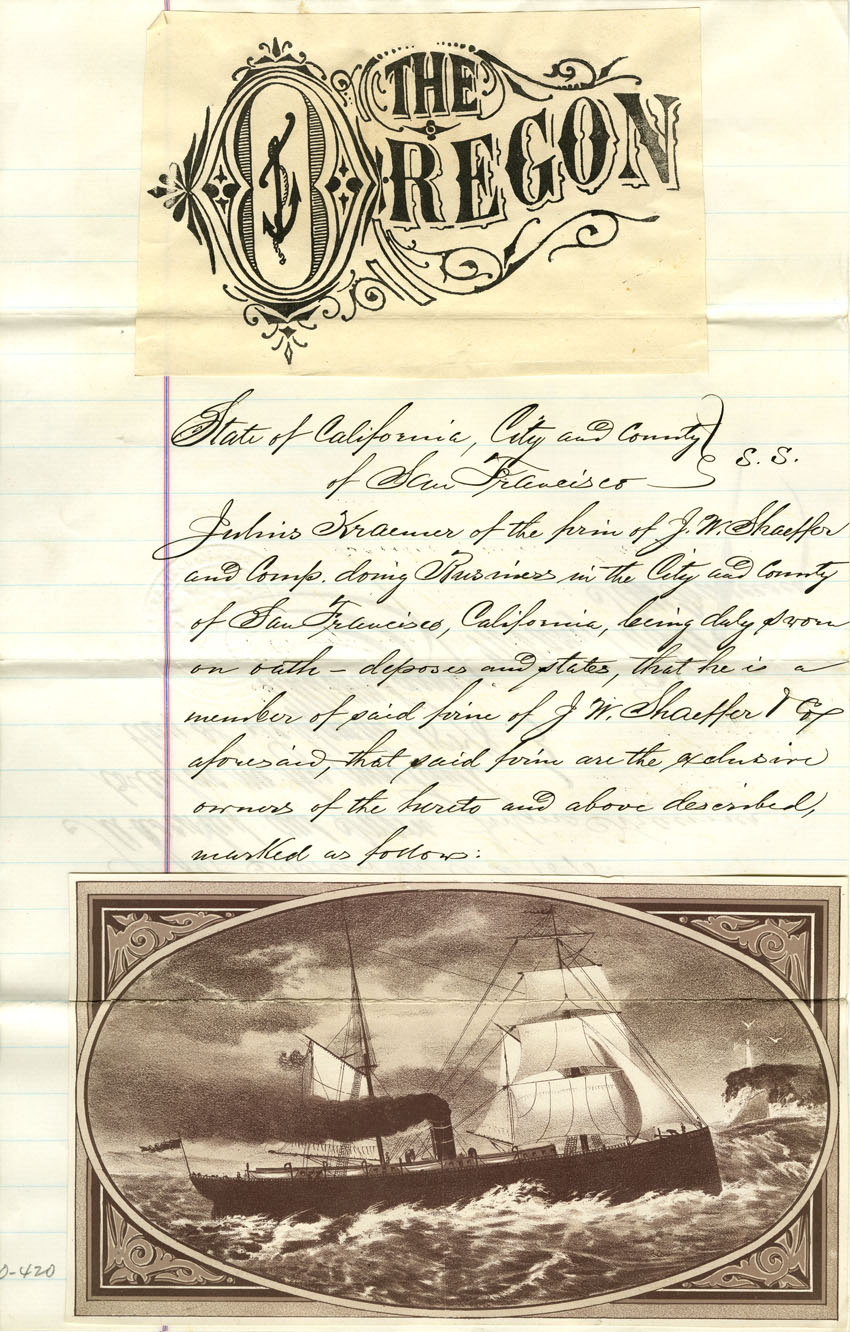 THE
OREGON
State of California, City and County
of San Francisco } S.S.
Julius Kraemer of the firm of J. W. Shaeffer
and Comp. doing Business in the City and County
of San Francisco, California, being duly sworn
on oath – deposes and states, that he is a
member of said firm of J. W. Shaeffer & Co
aforesaid, that said firm are the exclusive
owners of the hereto and above described,
marked as follows:
0-420